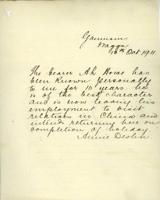 Wagga
26th Oct 1911
The bearer Ah
has
been known personally
to me for 10 years. he
is of the best character
and is now leaving his
employment to visit
relations in China and
intend returning has on
completion of holiday
Annie